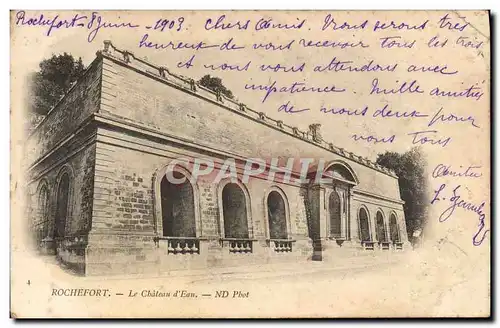 Rochefort 8 juin 1903
Chers Amis. Nous serons très
heureux de vous recevoir tous les trois
et nous vous attendons avec
impatience. Mille amitiés
de nous deux pour
vous tous.
Amitiés
L.
CPARAMA
4
ROCHEFORT. — Le Château d'Eau. — ND Phot